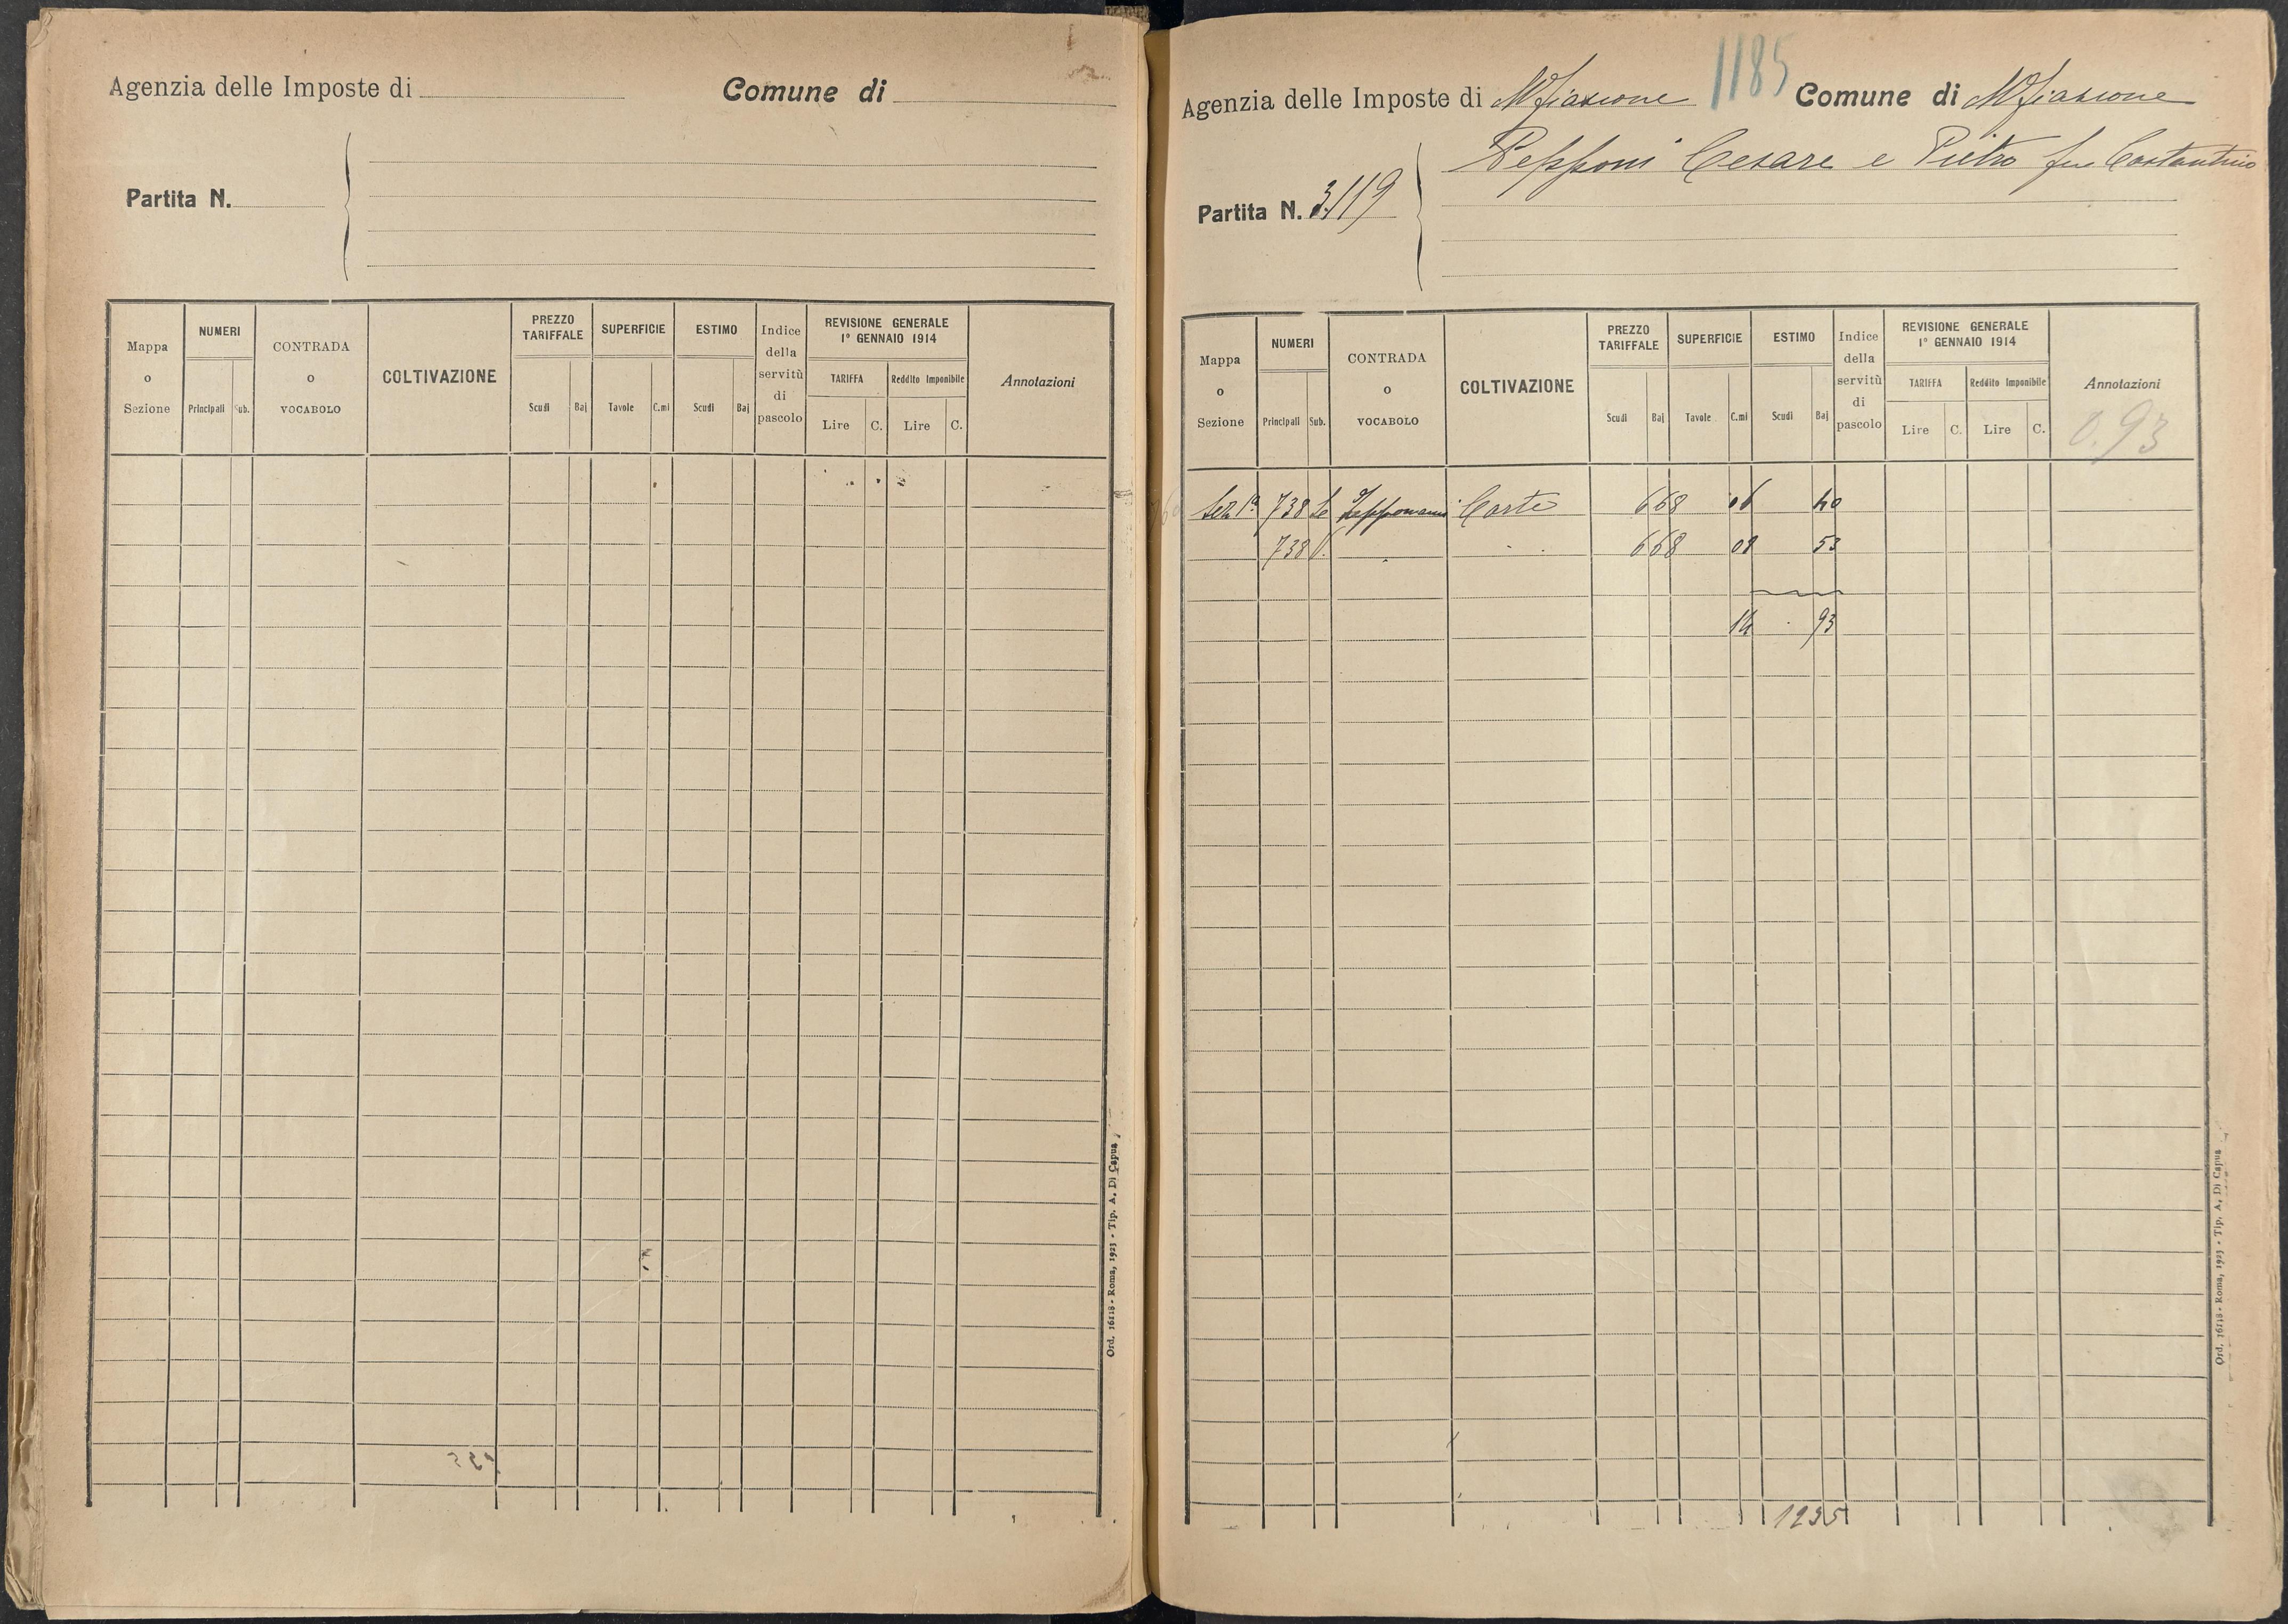 Agenzia delle Imposte di
Comune di
Partita N.
Mappa o Sezione
NUMERI
Principali
Sub.
CONTRADA o VOCABOLO
COLTIVAZIONE
PREZZO TARIFFALE
Scudi
Baj
SUPERFICIE
Tavole
C.mi
ESTIMO
Scudi
Baj
Indice della servitù di pascolo
REVISIONE GENERALE
1° GENNAIO 1914
TARIFFA
Reddito Imponibile
Lire
C.
Lire
C.
Annotazioni
Ord. 16118 - Roma, 1923 - Tip. A. Di Capua
1185
Agenzia delle Imposte di Mfiascone
Comune di Mfiascone
Pepponi Cesare e Pietro fu Costantino
Partita N. 3119
Mappa o Sezione
NUMERI
Principali
Sub.
CONTRADA o VOCABOLO
COLTIVAZIONE
PREZZO TARIFFALE
Scudi
Baj
SUPERFICIE
Tavole
C.mi
ESTIMO
Scudi
Baj
Indice della servitù di pascolo
REVISIONE GENERALE
1° GENNAIO 1914
TARIFFA
Reddito Imponibile
Lire
C.
Lire
C.
Annotazioni
0.93
Sez 1a 738 Corte 668 06 40
738 668 08 53
14 93
1235
Ord. 16118 - Roma, 1923 - Tip. A. Di Capua